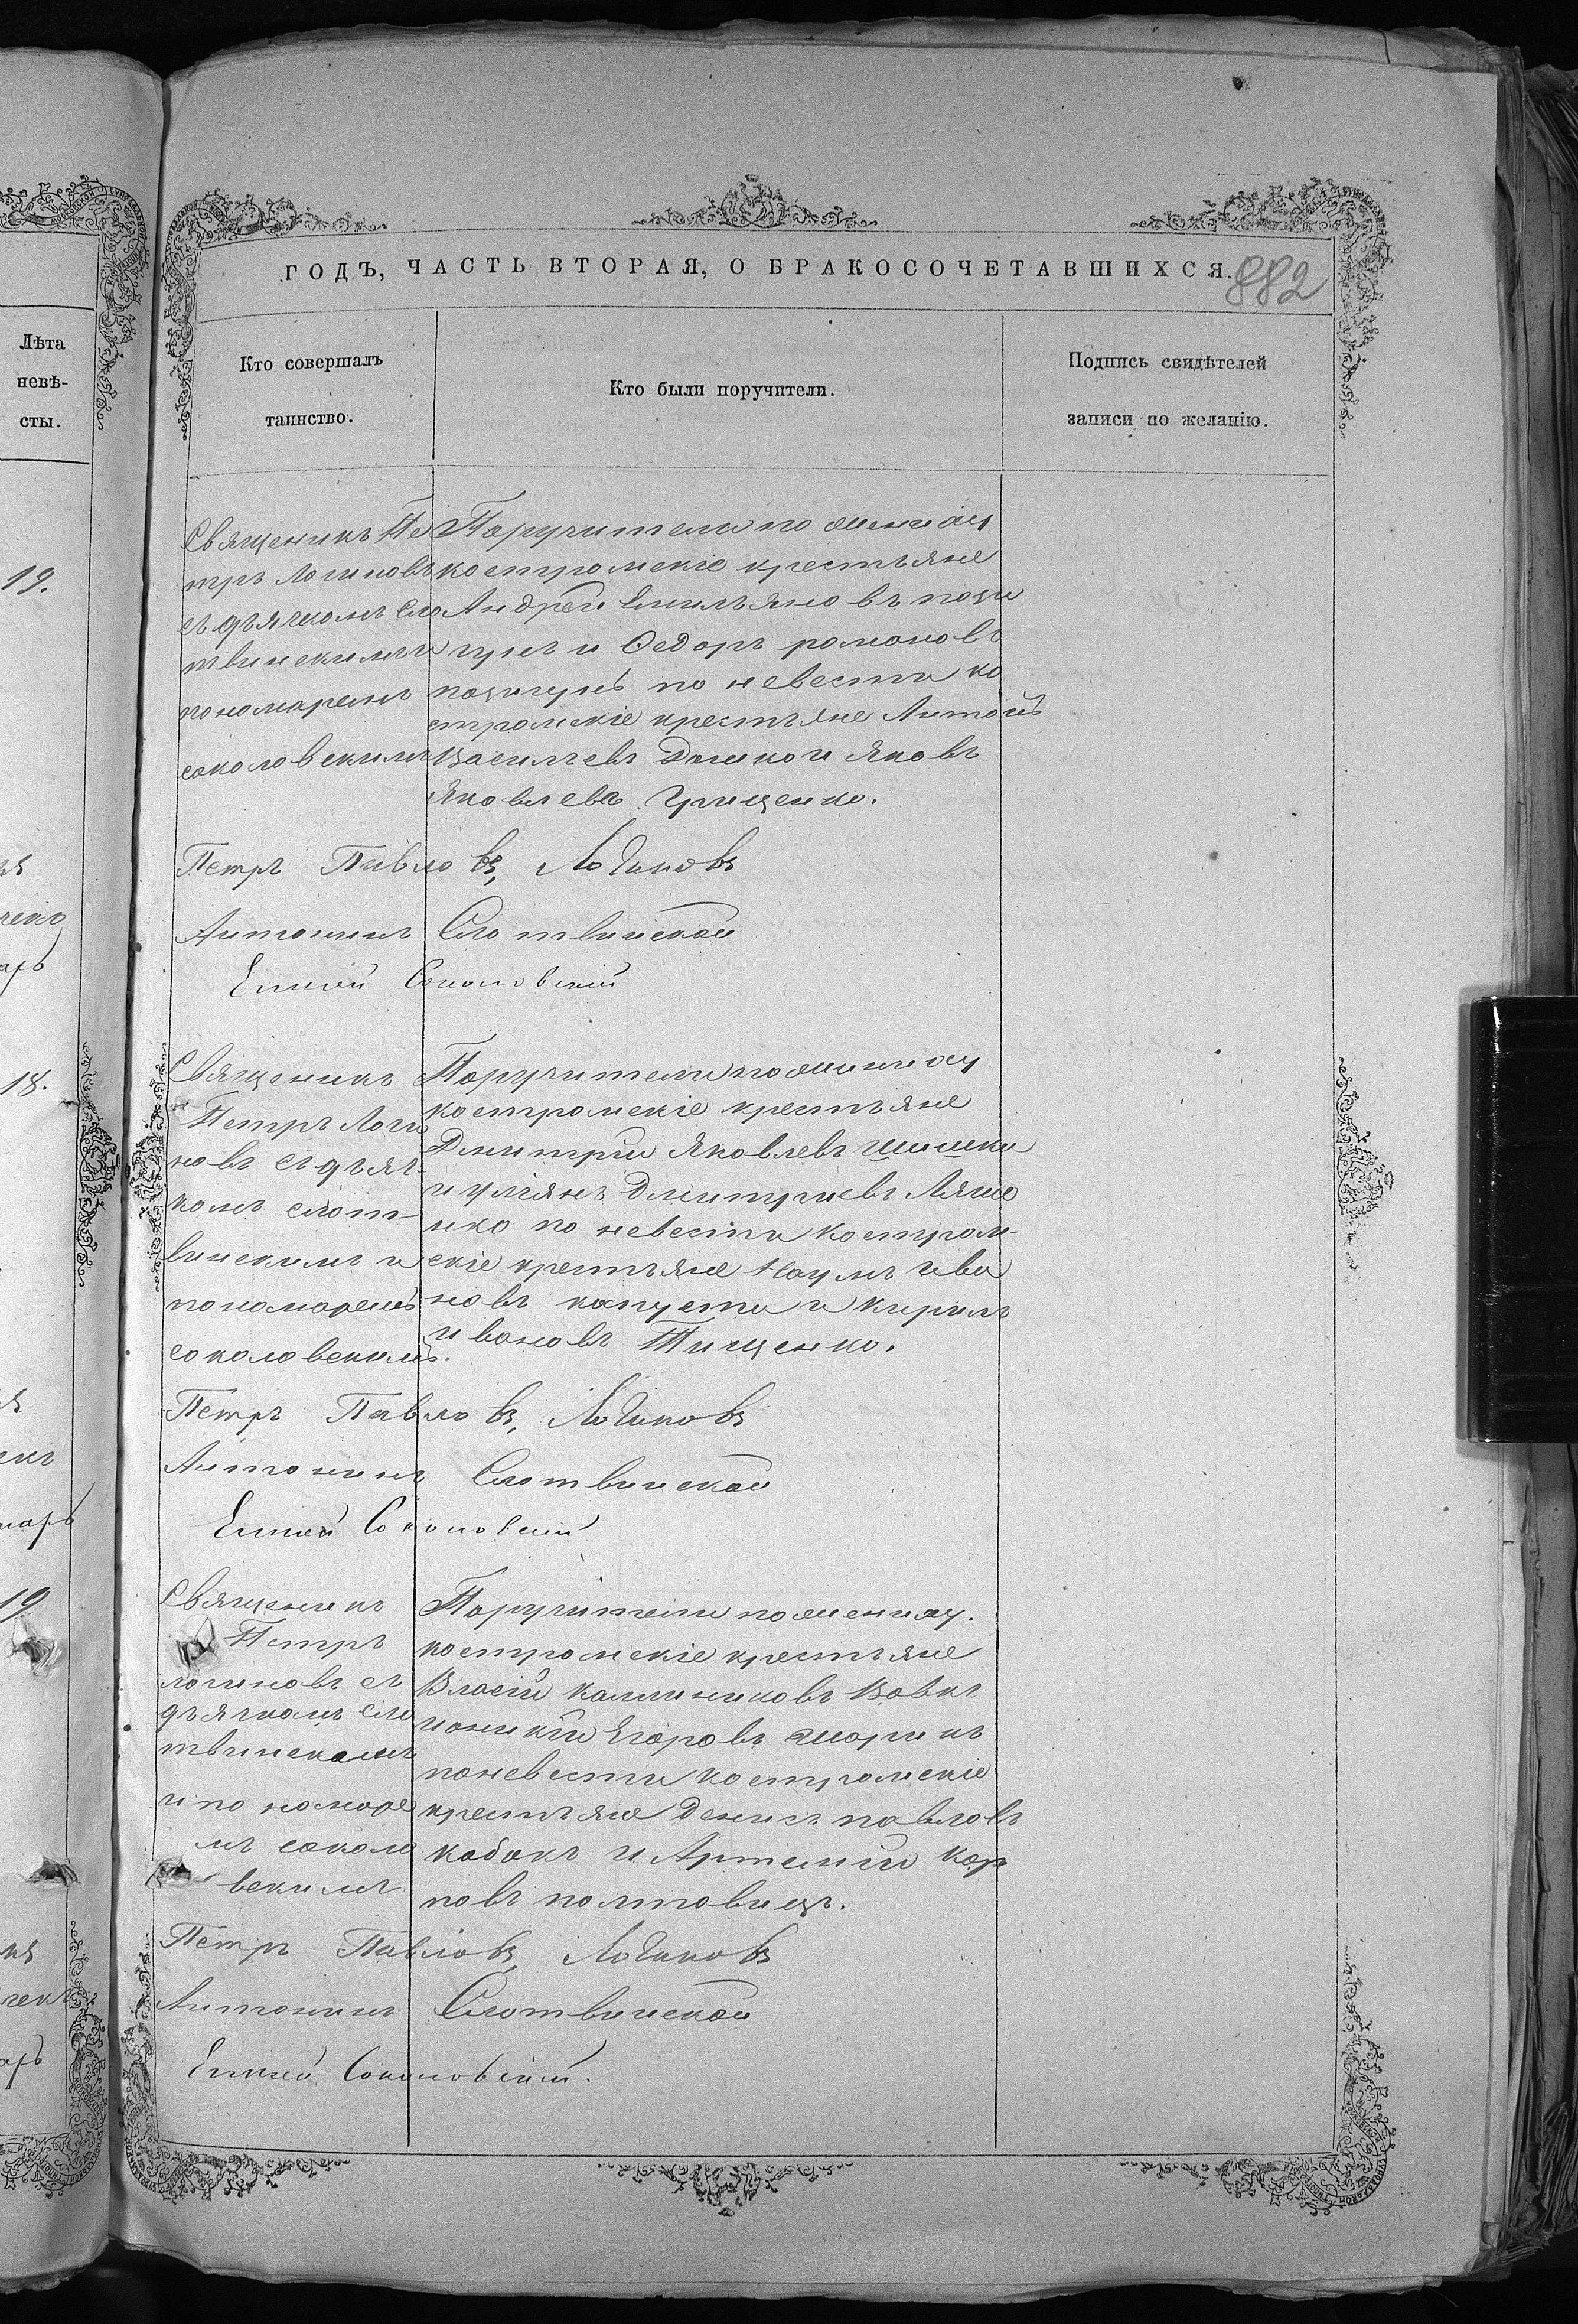 ГОДЪ, ЧАСТЬ ВТОРАЯ, О БРАКОСОЧЕТАВШИХСЯ.
882
Лѣта
невѣ-
сты.
Кто совершалъ
таинство.
Кто были поручители.
Подпись свидѣтелей
записи по желанію.
19.
Священикъ Пе
тръ Логиновъ
съ дьячкомъ Сло
твинскимъ и
пономаремъ
соколовскимъ
Поручители по жениху
костромскіе крестьяне
Андрей Емильяновъ
и Федоръ романовъ
по невести ко
стромскіе крестьяне Антонъ
Василъевъ и Яковъ
Яковлевъ Грищенко.
Петръ Павловъ, Логиновъ
Антонинъ Слотвинской
Соколовскій
18.
Священикъ
Петръ Логи
новъ съ дьяч-
комъ слот-
винскимъ и
пономаремъ
соколовскимъ.
Поручители по жениху
костромскіе крестьяне
Дмитрій Яковлевъ шишка
и улиянъ Дмитриевъ Ляше
нко по невести костром-
скіе крестьяне Наумъ ива
новъ капуста и кирилъ
ивановъ Тищенко.
Петръ Павловъ, Логиновъ
Антонинъ Слотвинской
Соколовскій
19
Священикъ
Петръ
логиновъ съ
дьячкомъ сло
твинскомъ
и пономоре
мъ соколо
вскимъ
Поручители по жениху.
костромскіе крестьяне
Власій калиниковъ Вовкъ
ионикій Егоровъ
по невести костромскіе
крестьяне Денисъ павловъ
кабакъ и Артемій кар
повъ полтавецъ.
Петръ Павловъ, Логиновъ
Антонинъ Слотвинской
Соколовскій.